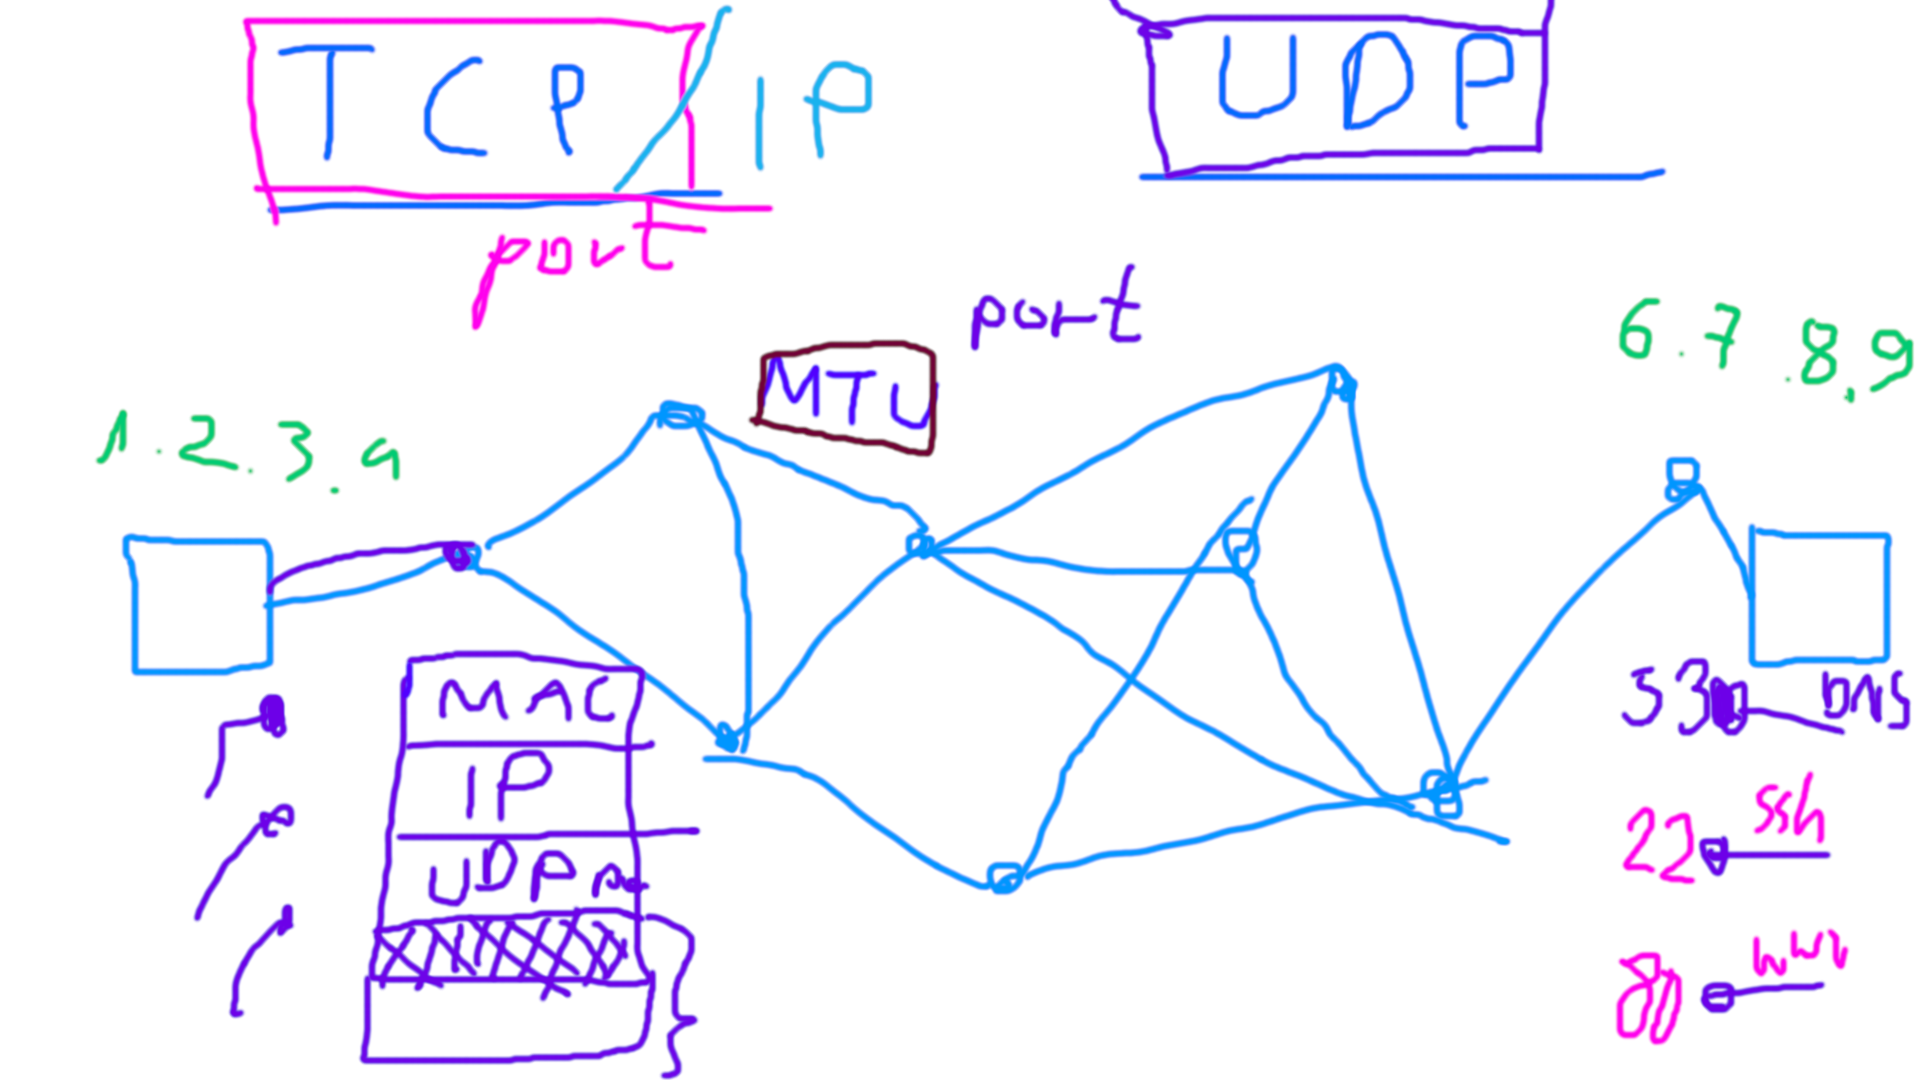 TCP/IP
UDP
port
port
MTU
6.7.8.9
1.2.3.4
MAC
IP
UDP
53 DNS
22 ssh
80